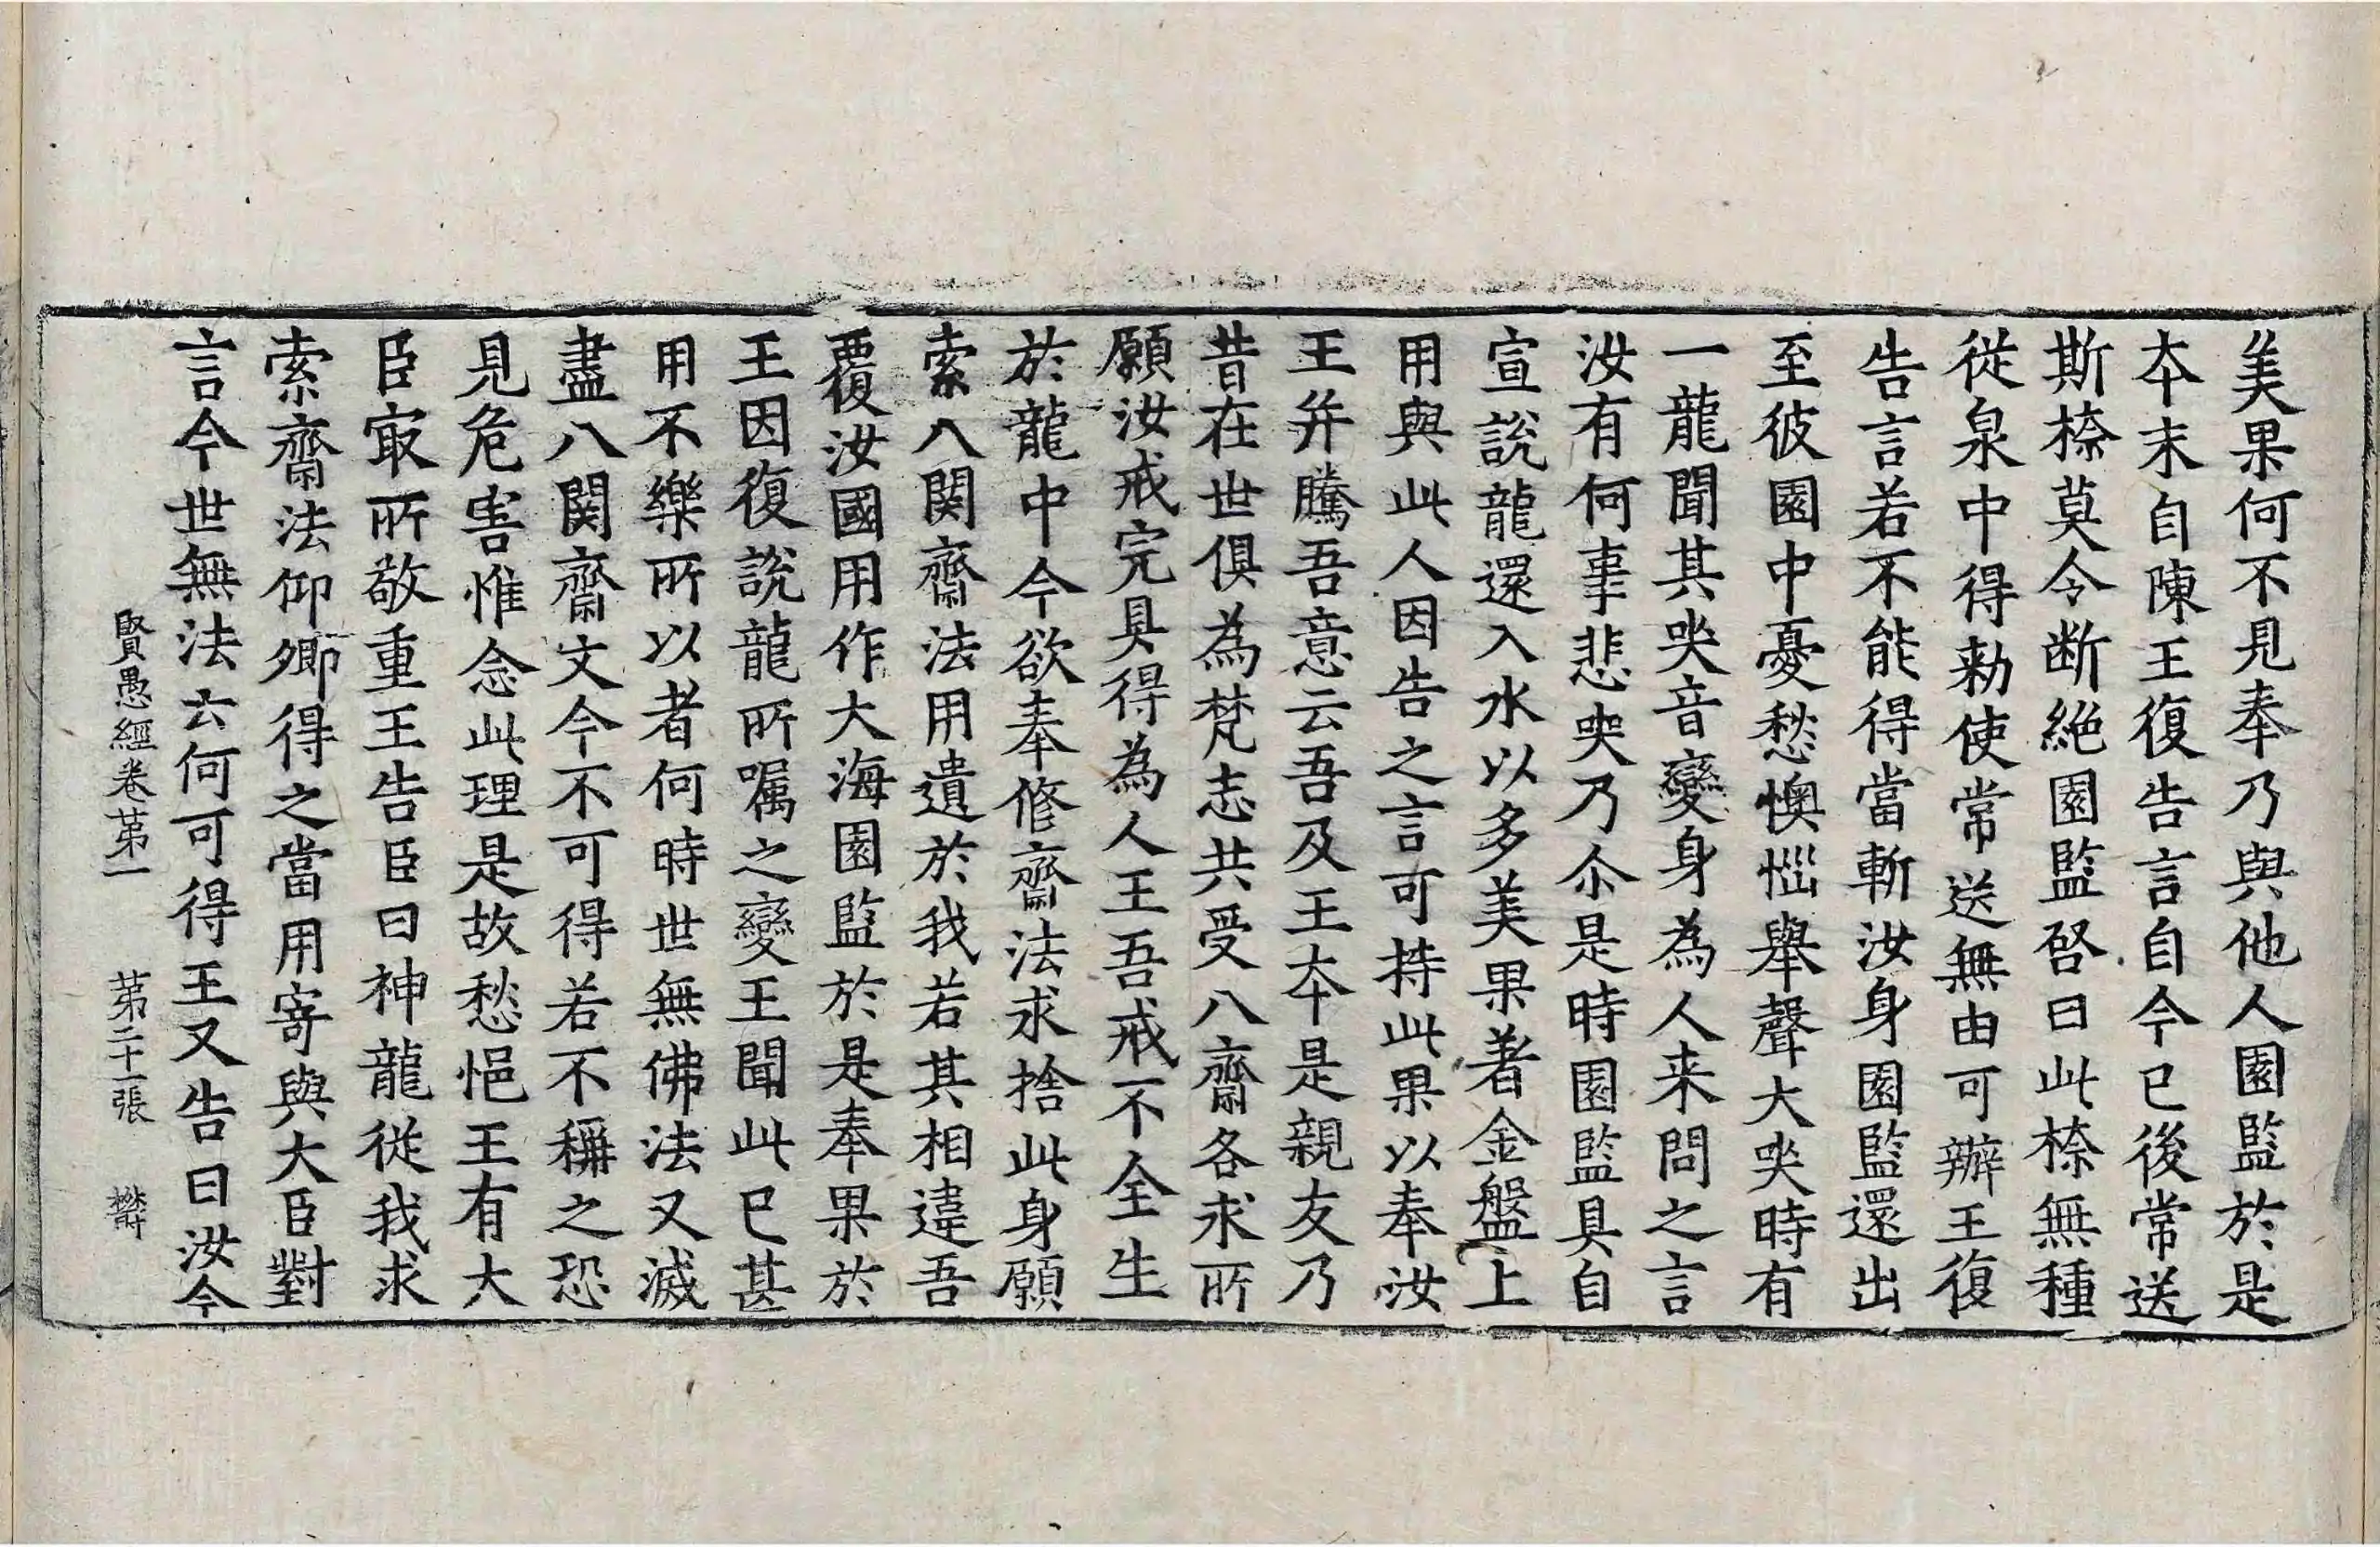 美果何不見奉乃與他人園監於是
夲末自陳王復告言自今已後常送
斯㮈莫令断絶園監啓曰此㮈無種
從泉中得勑使常送無由可辦王復
告言若不能得當斬汝身園監還出
至彼園中憂愁懊惱舉聲大哭時有
一龍聞其哭音變身為人来問之言
汝有何事悲哭乃尒是時園監具自
宣説龍還入水以多美果著金盤上
用與此人因告之言可持此果以奉汝
王并騰吾意云吾及王夲是親友乃
昔在世俱為梵志共受八齋各求所
願汝戒完具得為人王吾戒不全生
於龍中今欲奉修齋法求捨此身願
索八関齋法用遺於我若其相違吾
覆汝國用作大海園監於是奉果於
王因復説龍所囑之變王聞此已甚
用不樂所以者何時世無佛法又滅
盡八関齋文今不可得若不稱之恐
見危害惟念此理是故愁悒王有大
臣㝡所敬重王告臣曰神龍從我求
索齋法仰卿得之當用寄與大臣對
言今世無法云何可得王又告曰汝今
賢愚經卷苐一　苐二十一張　欎